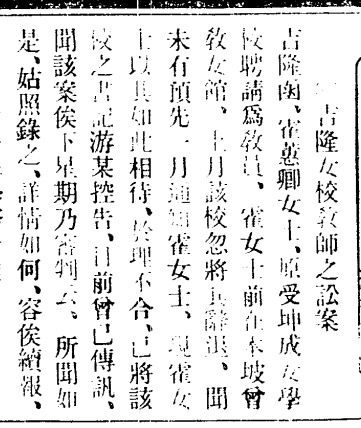 吉隆女校教師之訟案
吉隆函、霍蕙卿女士、原受坤成女學
校聘請爲敎員、霍女士前在本坡曾
敎女館、上月該校忽將其辭退、聞
未有預先一月通知霍女士、現霍女
士以其如此相待、於理不合、已將該
校之書記游某控告、日前曾已傳訊、
聞該案俟下星期乃審判云、所聞如
是、姑照錄之、詳情如何、容俟續報、